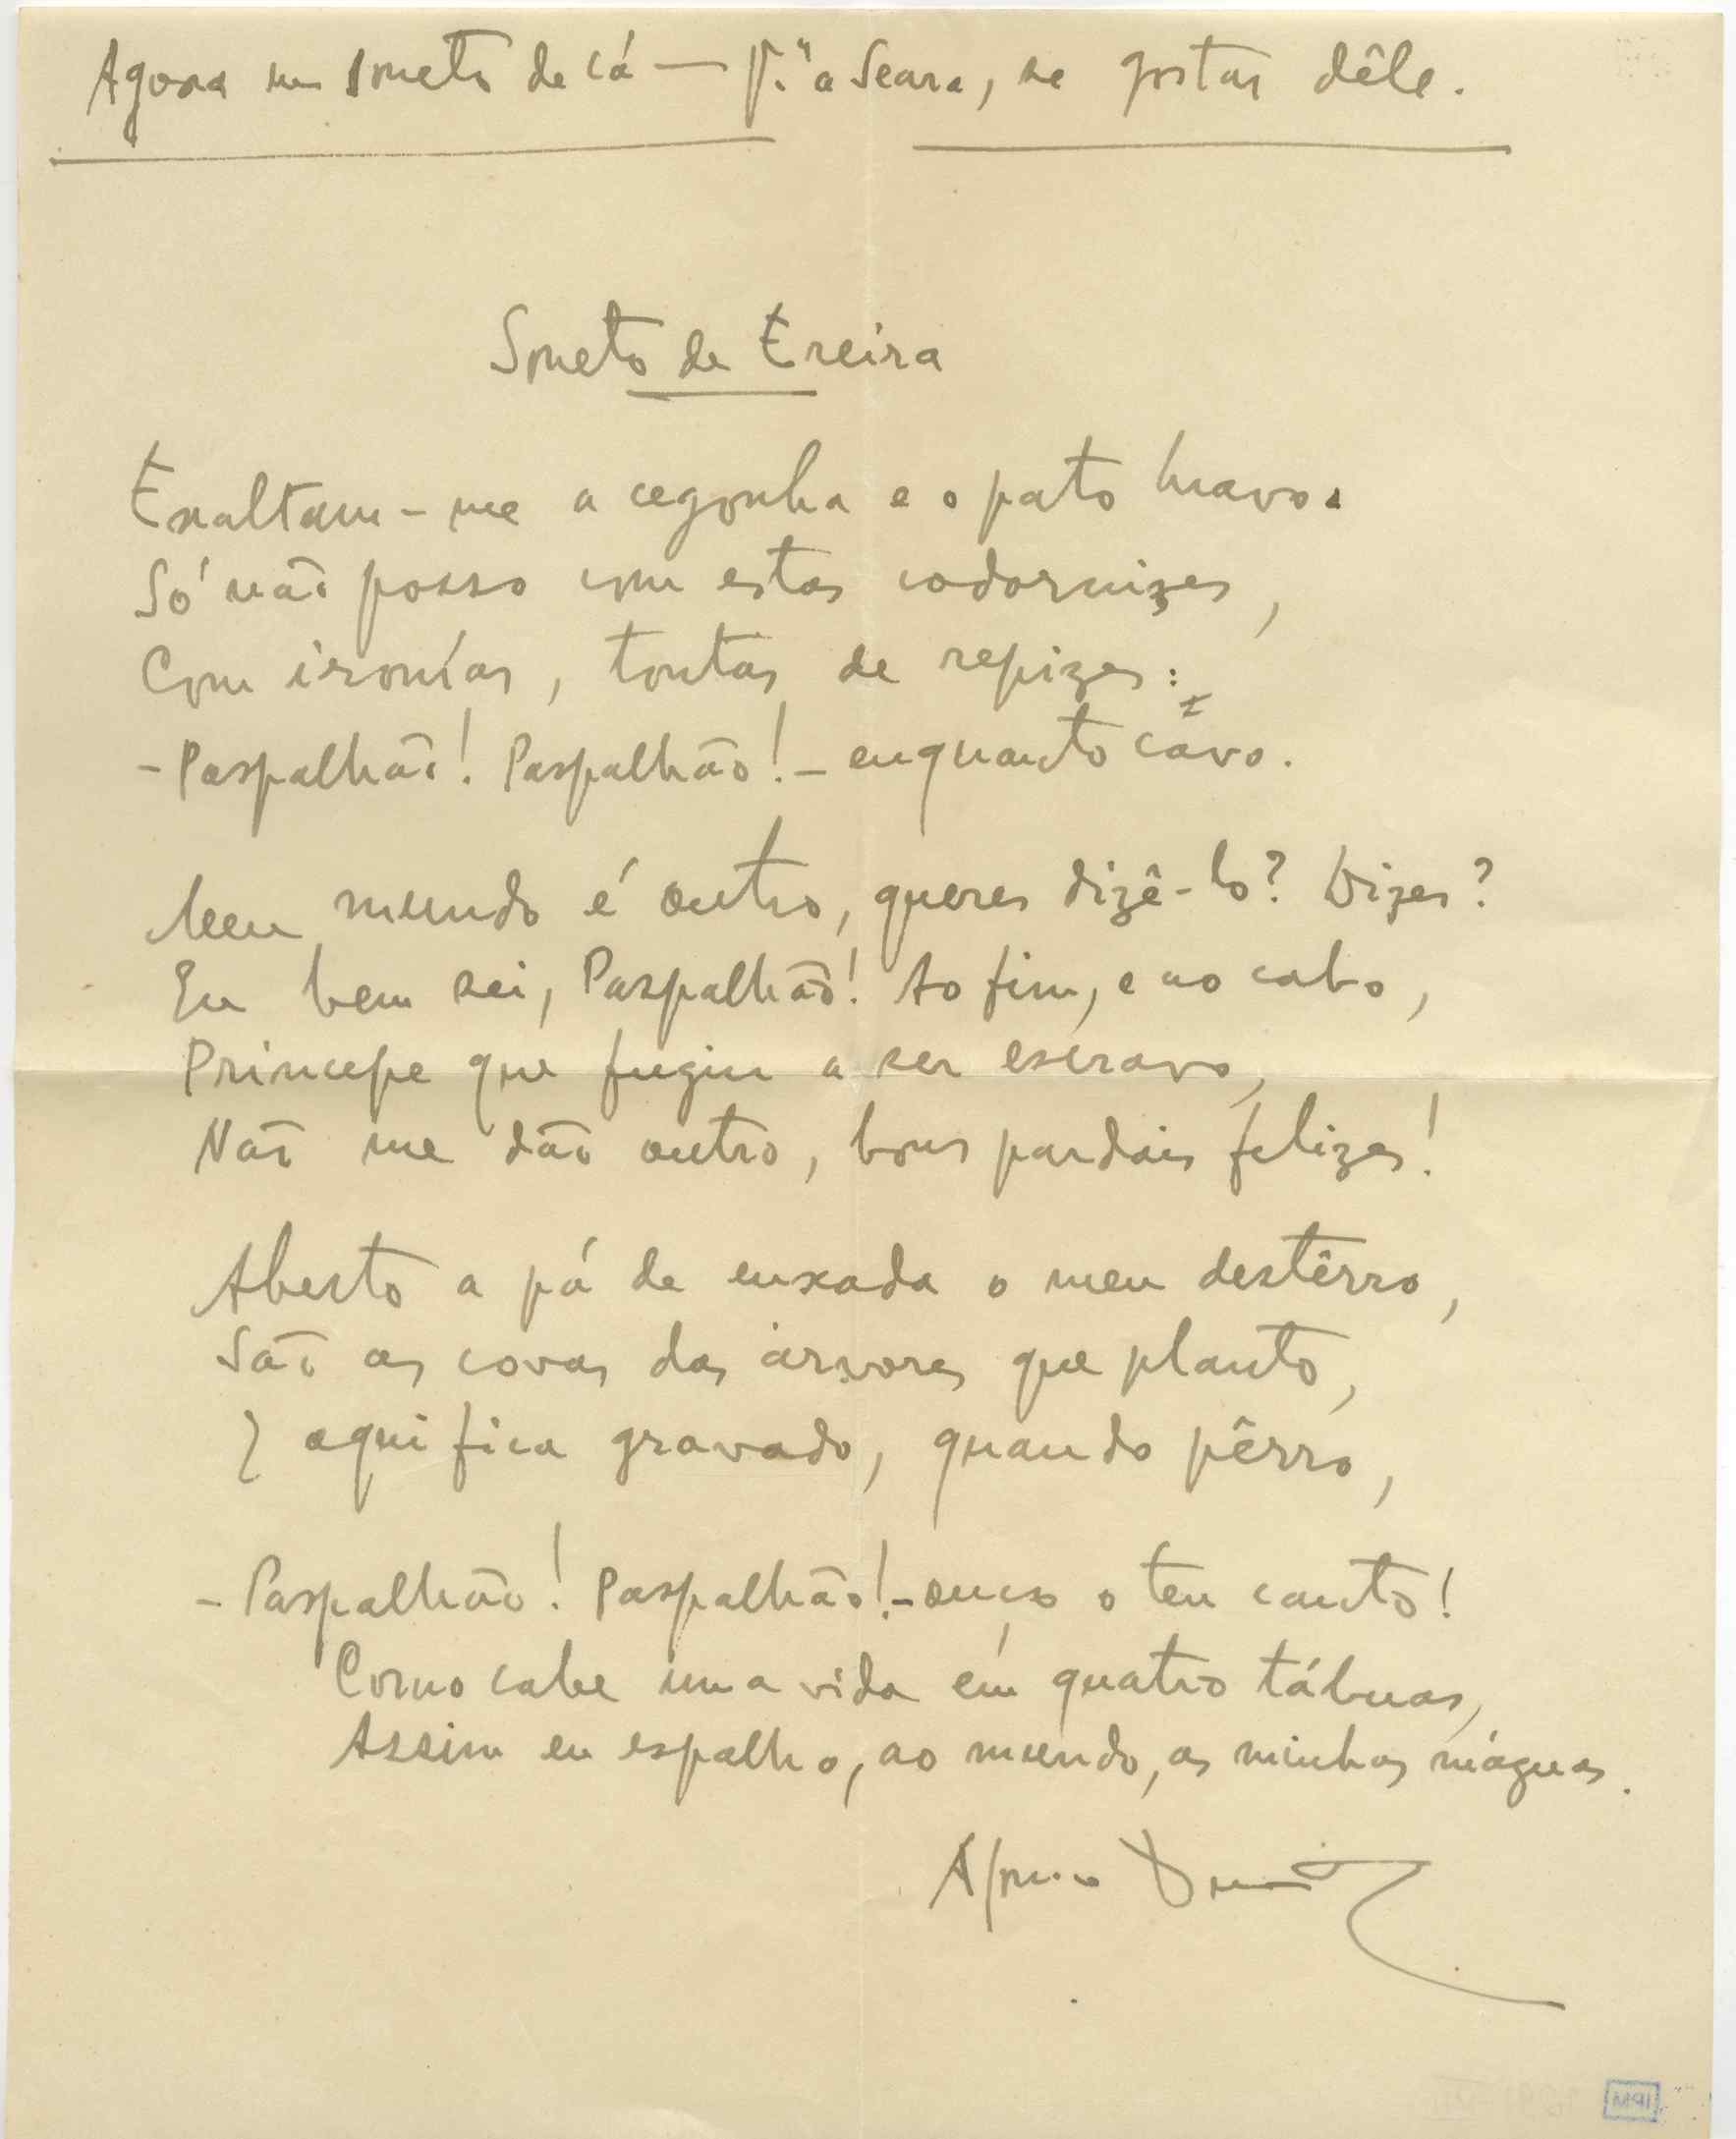 Agora um soneto de cá — P.ª a Seara, se gostar dêle.
Soneto de Ereira
Exaltam-me a cegonha e o pato bravo.
Só não posso com estas codornizes,
Com ironías, tontas de repizes:
- Paspalhão! Paspalhão! - enquanto cavo.
Meu mundo é outro, queres dizê-lo? Dizes?
Eu bem sei, Paspalhão! Ao fim, e ao cabo,
Príncepe que fugiu a ser escravo,
Não me dão outro, bons pardais felizes!
Aberto a pá de enxada o meu destêrro,
São as covas das árvores que planto,
E aqui fica gravado, quando pêrro,
- Paspalhão! Paspalhão! - ouço o teu canto!
Como cabe uma vida em quatro tábuas,
Assim eu espalho, ao mundo, as minhas mágoas.
Afonso Duarte
IPM